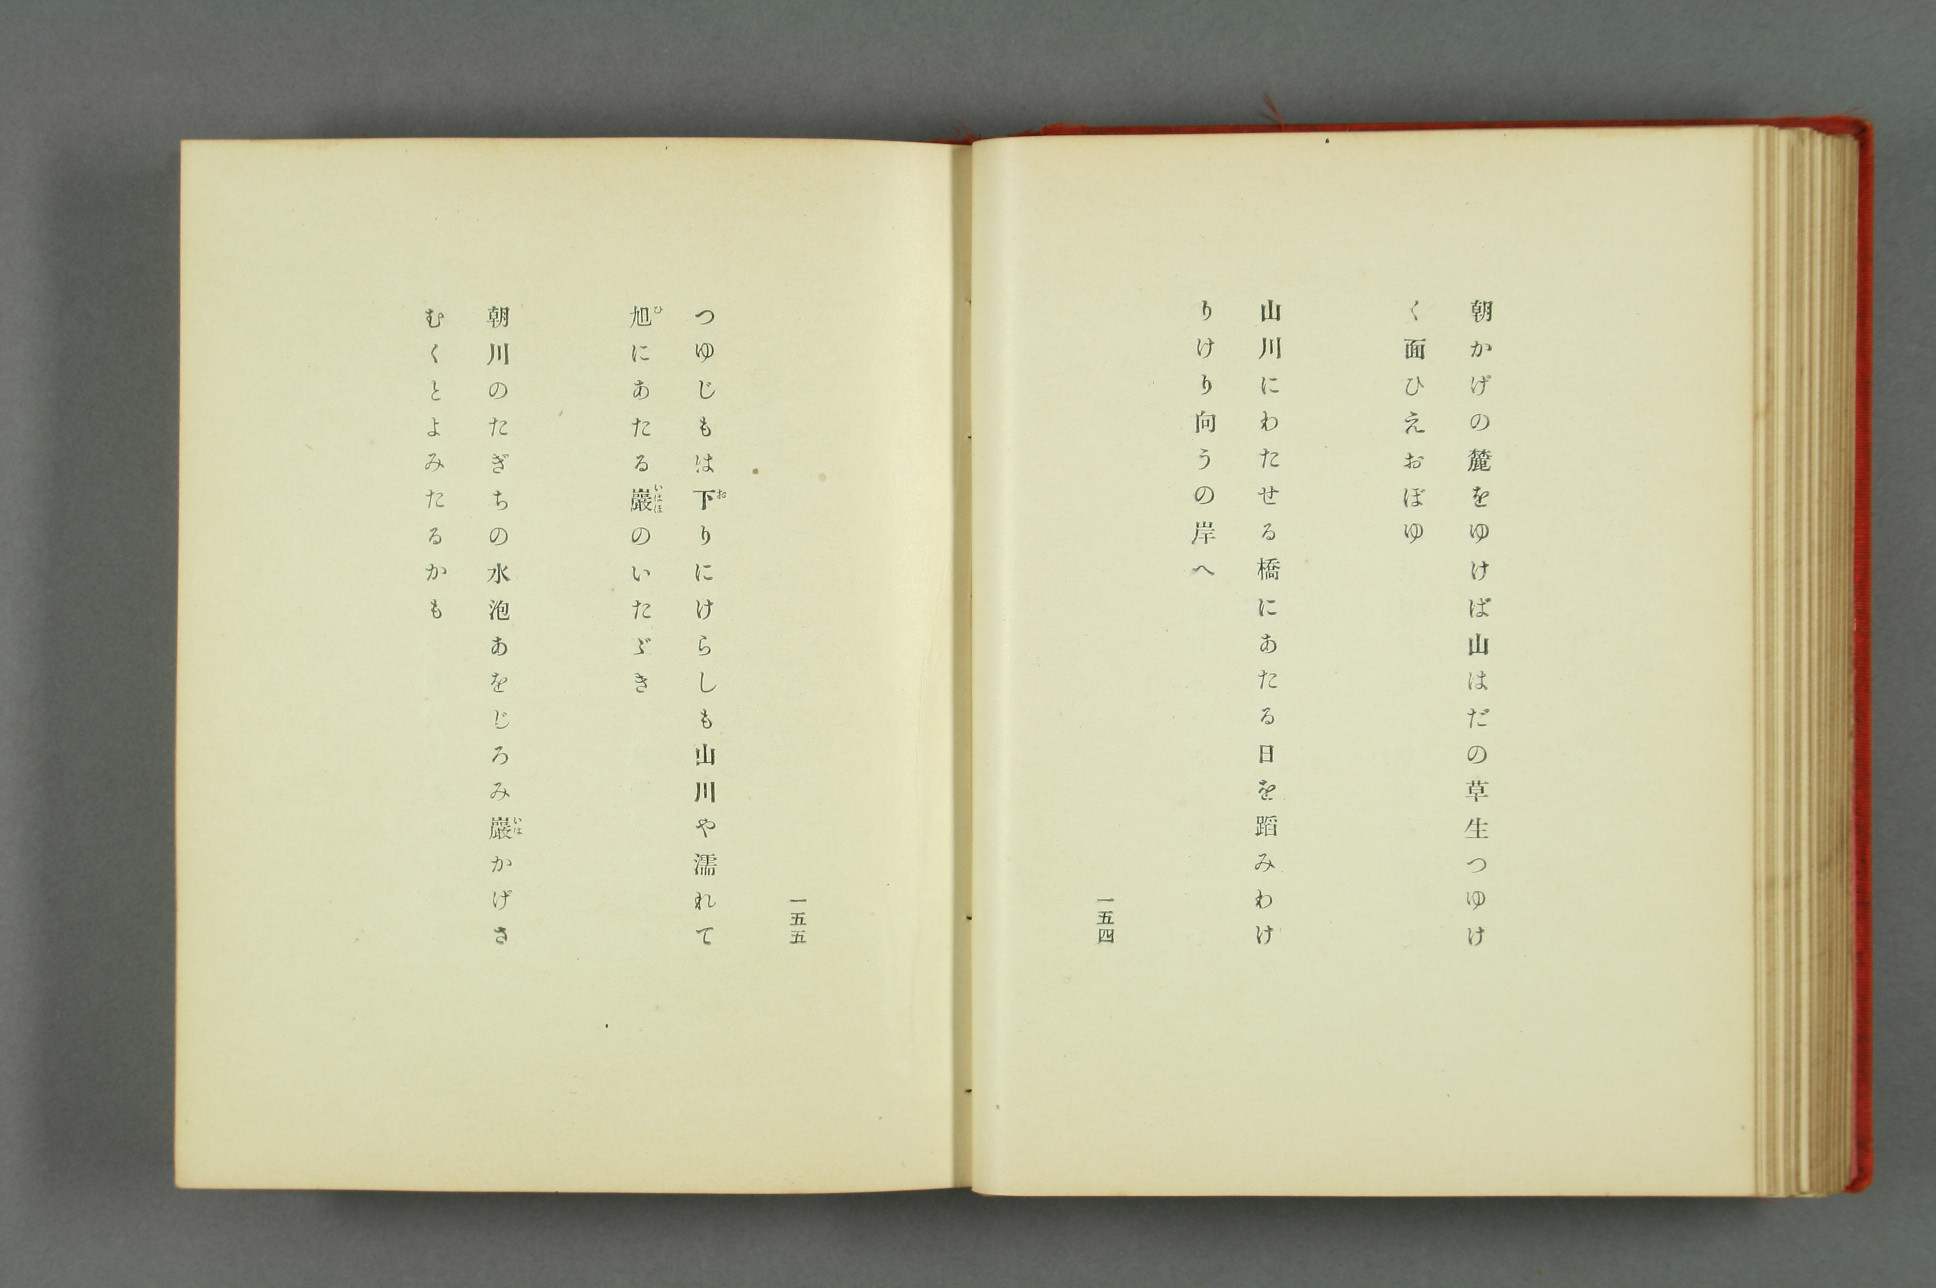 朝かげの麓をゆけば山はだの草生つゆけ
く面ひえおぼゆ
山川にわたせる橋にあたる日を蹈みわけ
りけり向うの岸へ
一五四
つゆじもは下りにけらしも山川や濡れて
旭にあたる巖のいたゞき
朝川のたぎちの水泡あをじろみ巖かげさ
むくとよみたるかも
一五五